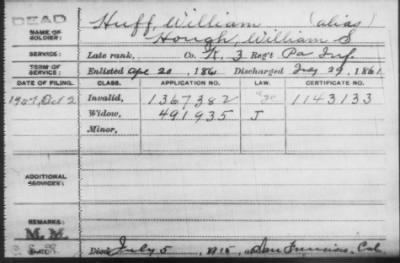 DEAD
NAME OF SOLDIER: Huff, William (alias)
Hough, William S
SERVICE: Late rank, Co. K, 3 Reg't Pa Inf.
TERM OF SERVICE: Enlisted Apr 20, 1861 Discharged July 29, 1861
DATE OF FILING. CLASS. APPLICATION NO. LAW. CERTIFICATE NO.
1907, Oct 2 Invalid, 1367382 1143133
Widow, 491935 J
Minor,
ADDITIONAL SERVICES:
REMARKS:
M.M. Died July 5, 1915, San Francisco, Cal